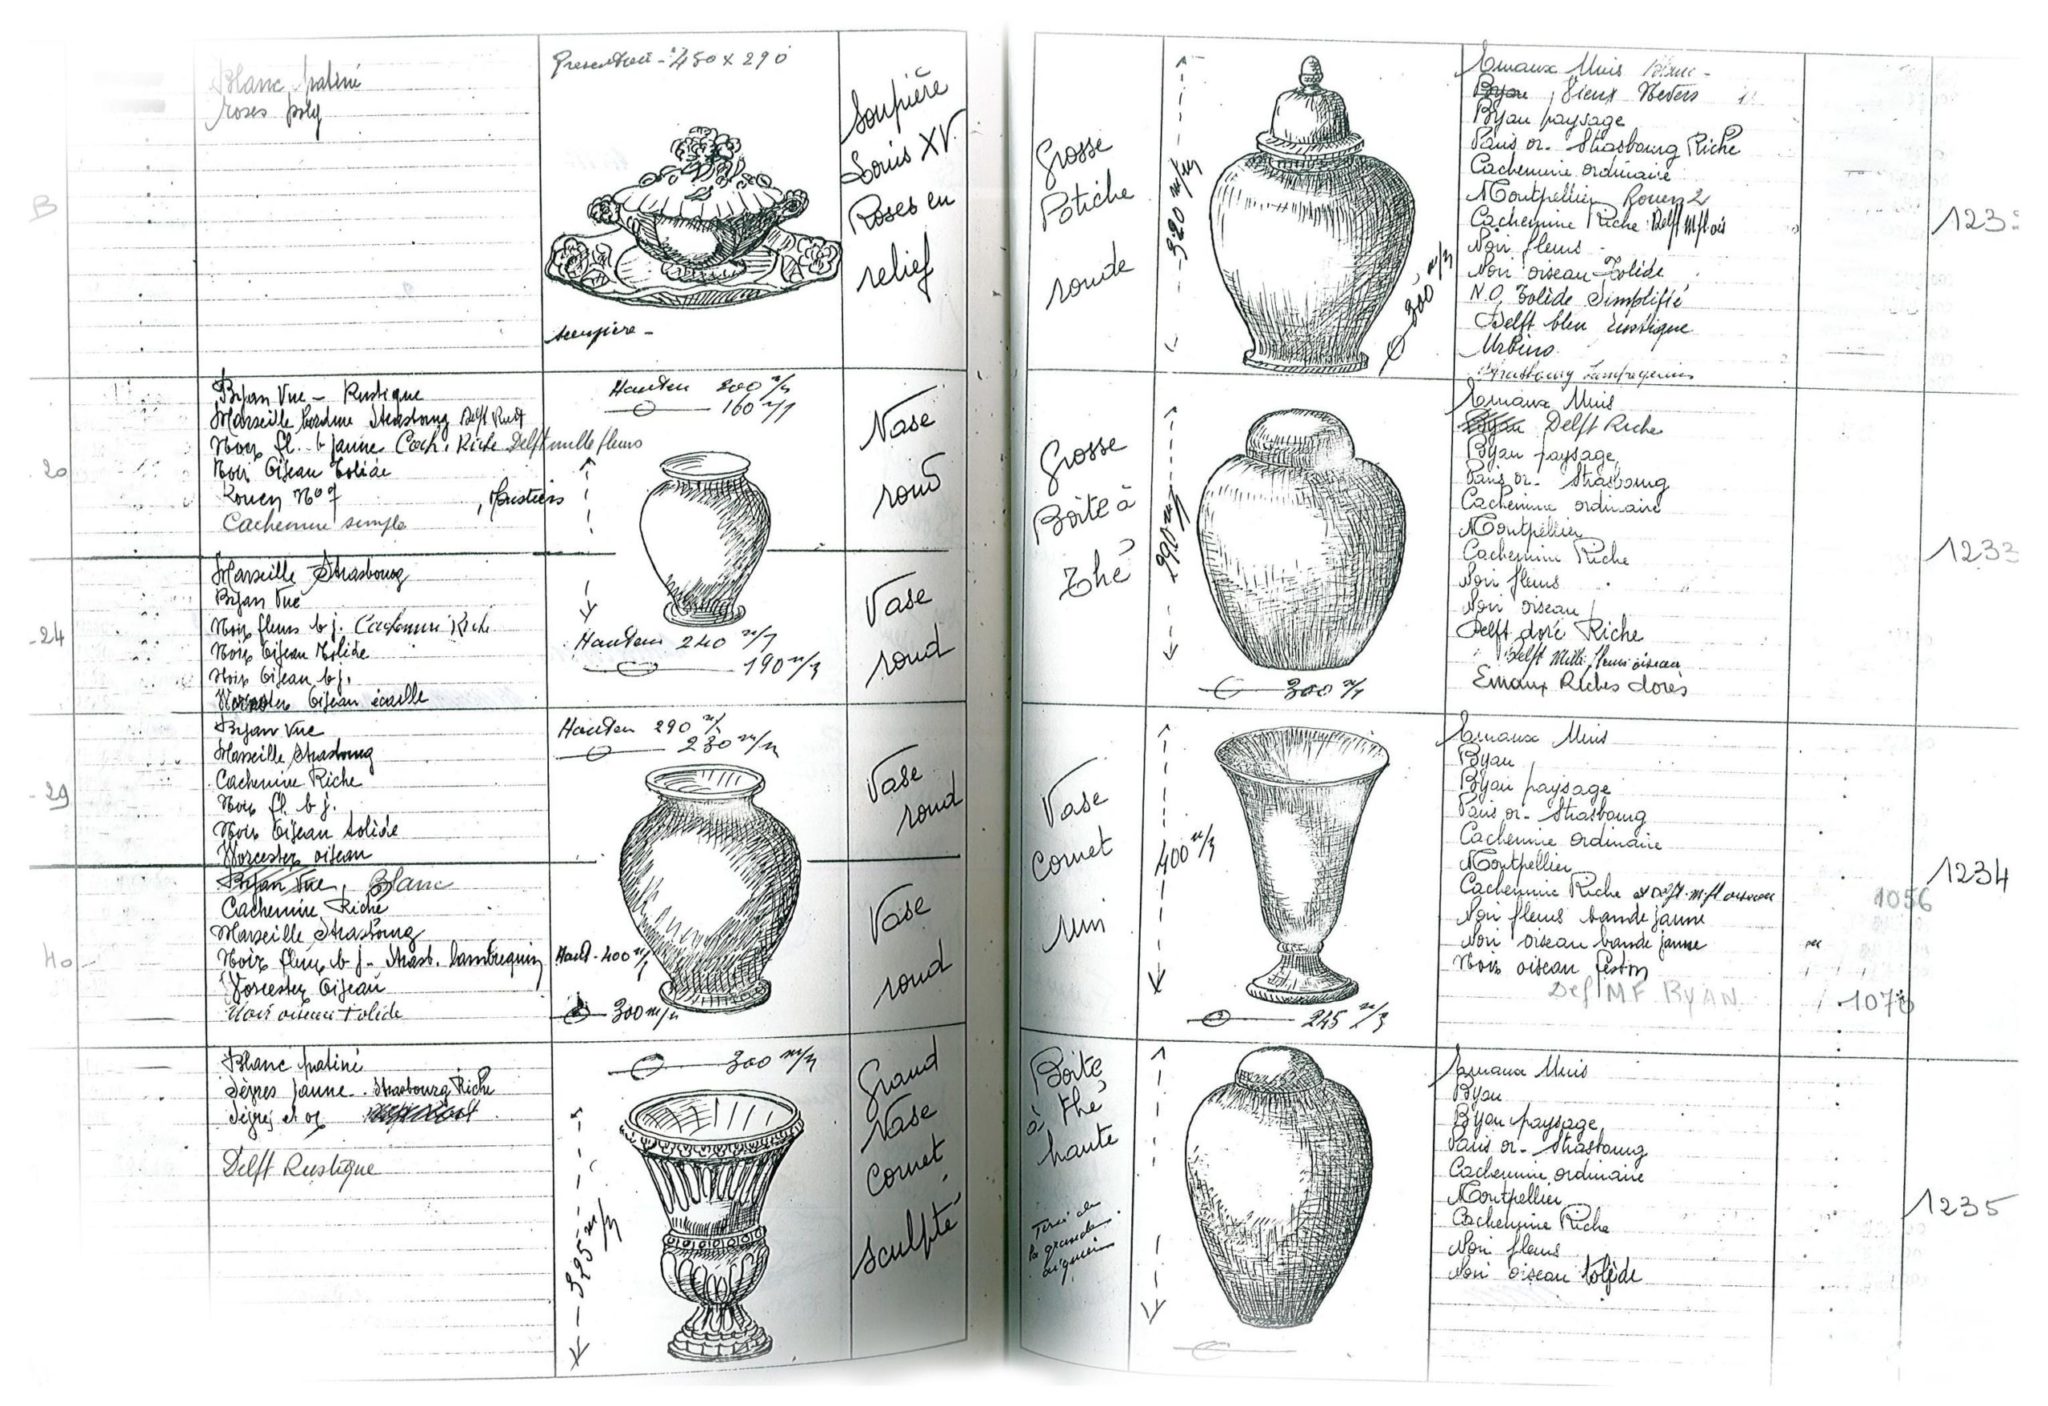 Blanc patiné
roses poly
Presentation - 450 x 290
soupière -
Soupière
Louis XV
Roses en
relief
B
Byan Vue - Rustique
Marseille bordure Strasbourg Delft Rust
Noir fl. b jaune Cach. Riche Delft mille fleurs
Noir Oiseau Tolède
Rouen No 7, Moustiers
Cachemire simple
Hauteur 200 m/m
160 m/m
Vase
rond
20
Marseille Strasbourg
Byan Vue
Noir fleurs b j. Cachemire Riche
Noir Oiseau Tolède
Noir Oiseau b j.
Worcester Oiseau écaille
Hauteur 240 m/m
190 m/m
Vase
rond
-24
Byan Vue
Marseille Strasbourg
Cachemire Riche
Noir fl. b j.
Noir Oiseau tolède
Worcester oiseau
Hauteur 290 m/m
230 m/m
Vase
rond
-29
Byan Vue, Blanc
Cachemire Riche
Marseille Strasbourg
Noir fleurs b j- Strasb. lambrequin
Worcester Oiseau
Noir oiseau tolède
Haut - 400 m/m
300 m/m
Vase
rond
40
Blanc patiné
Sèvres jaune - Strasbourg Riche
Sèvres et or
Delft Rustique
300 m/m
395 m/m
Grand
Vase
Cornet
sculpté
Grosse
Potiche
ronde
320 m/m
300 m/m
Emaux Unis Blanc -
Byan, Vieux Nevers
Byan paysage
Paris or - Strasbourg Riche
Cachemire ordinaire
Montpellier Rouen 2
Cachemire Riche Delft M fl ois
Noir fleurs
Noir oiseau Tolède
N O Tolède Simplifié
Delft bleu rustique
Urbino
Strasbourg Lambrequins
123
Grosse
Boite à
thé
290 m/m
300 m/m
Emaux Unis
Byan Delft Riche
Byan paysage
Paris or - Strasbourg
Cachemire ordinaire
Montpellier
Cachemire Riche
Noir fleurs
Noir oiseau
Delft doré Riche
Delft Mille fleurs oiseau
Emaux Riches dorés
1233
Vase
cornet
uni
400 m/m
245 m/m
Emaux Unis
Byan
Byan paysage
Paris or - Strasbourg
Cachemire ordinaire
Montpellier
Cachemire Riche et Delft m. fl oiseau
Noir fleurs bande jaune
Noir oiseau bande jaune
Noir oiseau feston
Def MF BYAN
1056
1234
Boite
à thé
haute
Tiré de
la grande
Emaux Unis
Byan
Byan paysage
Paris or - Strasbourg
Cachemire ordinaire
Montpellier
Cachemire Riche
Noir fleurs
Noir oiseau tolède
1235